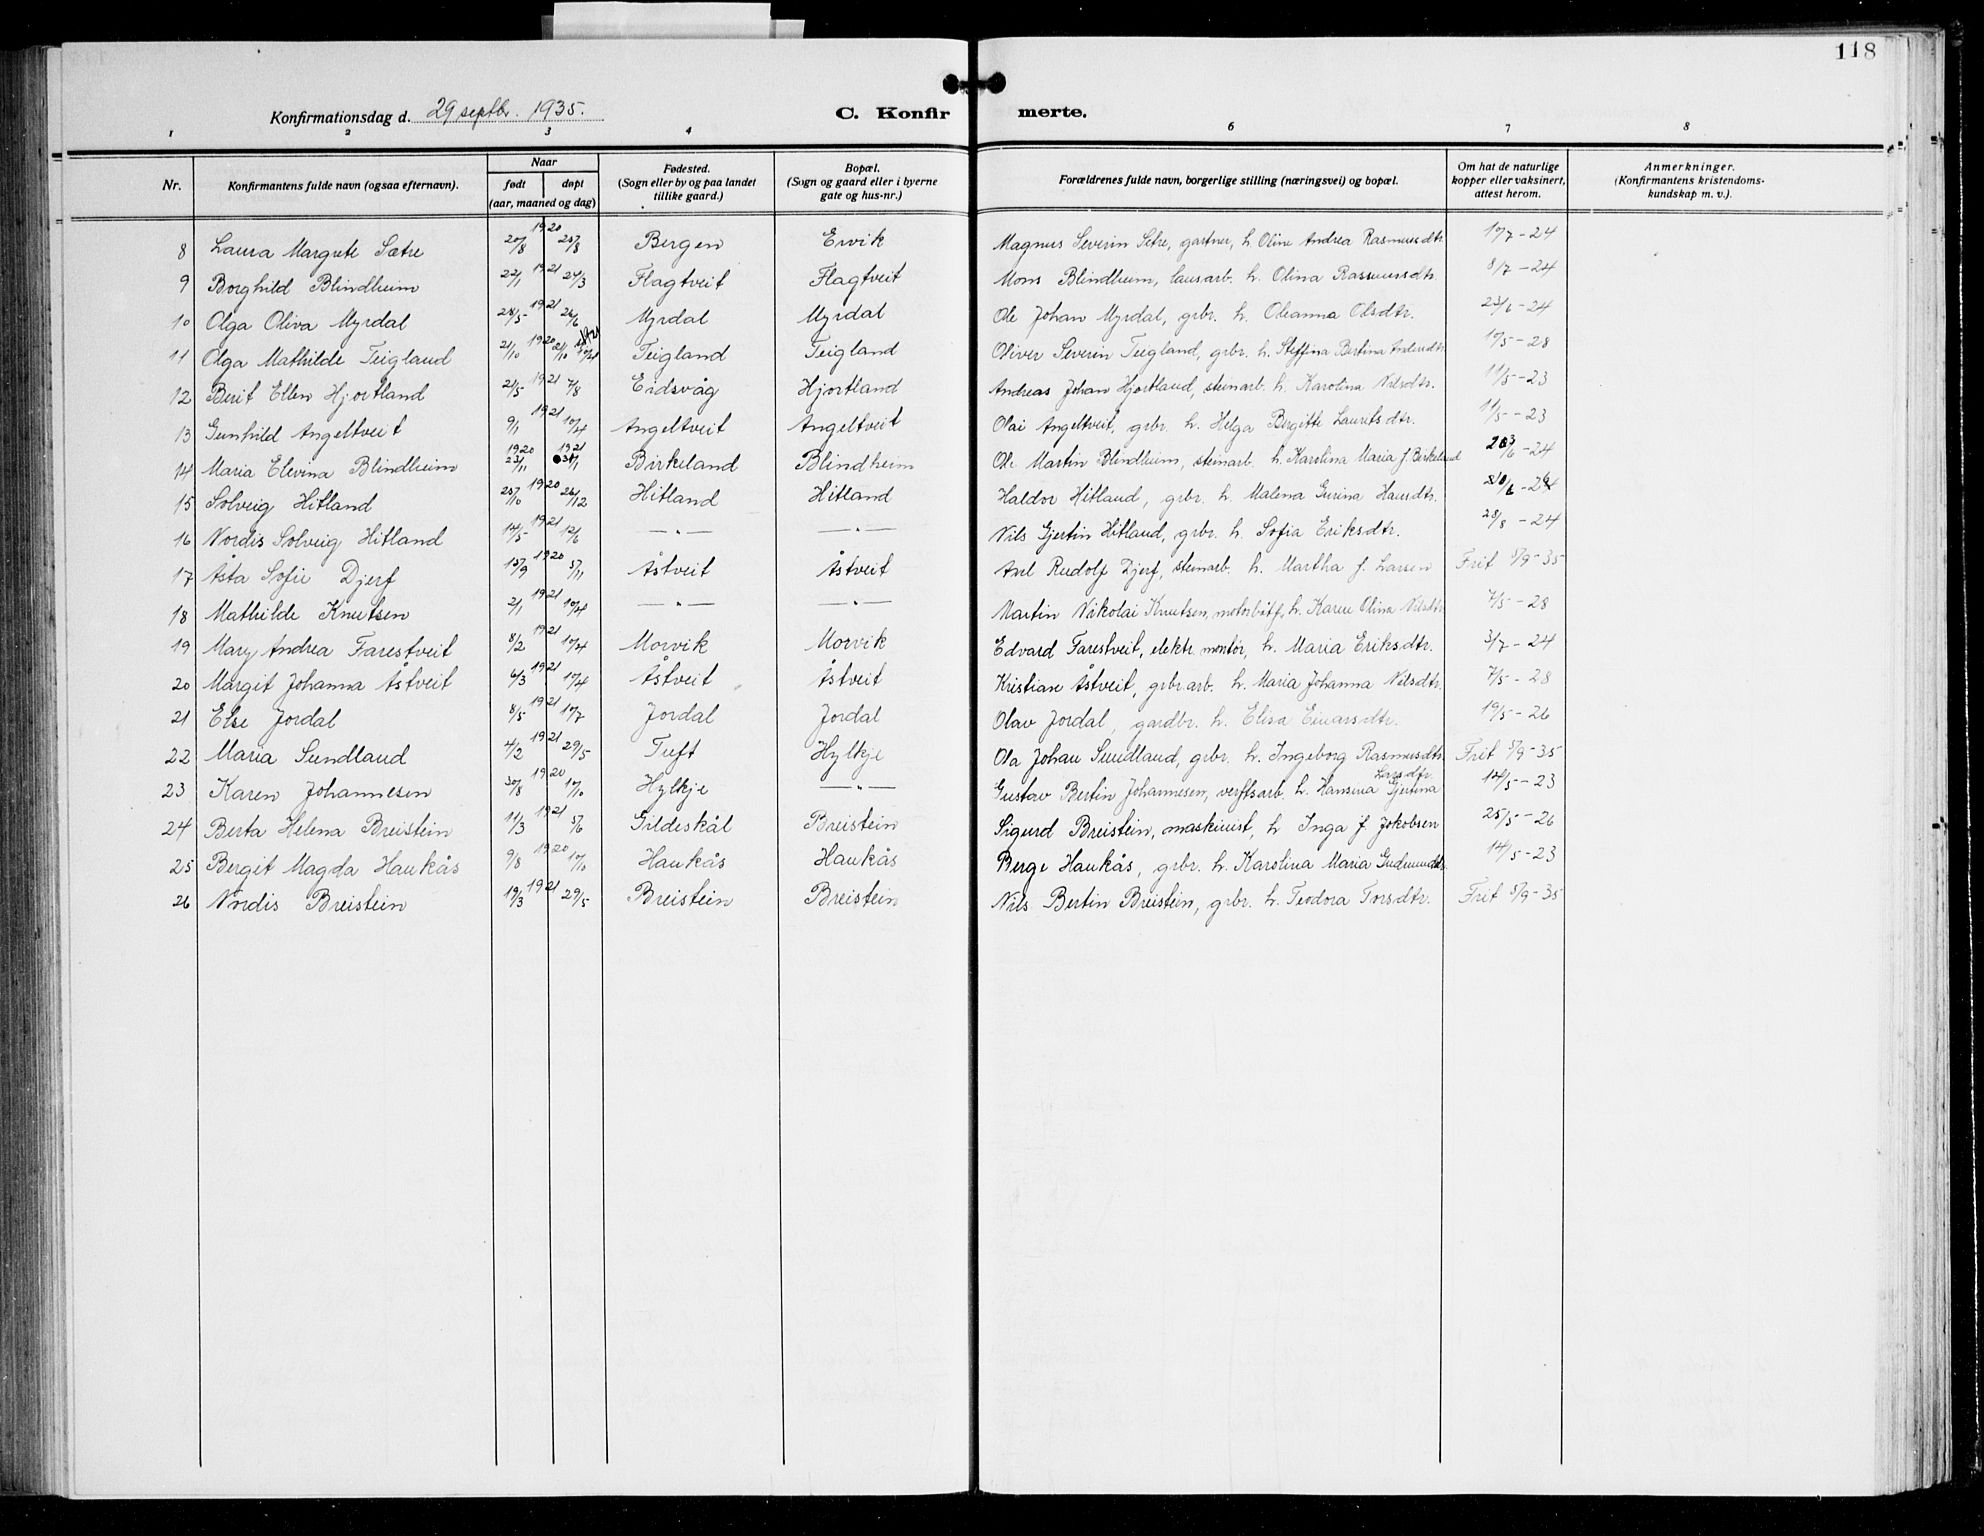 118
Konfirmationsdag d. 29 septbr. 1935. C. Konfirmerte.
1 2 3 4 5 6 7 8
Nr. Konfirmantens fulde navn (ogsaa efternavn). Naar født døpt (aar, maaned og dag) Fødested. (Sogn eller by og paa landet tillike gaard.) Bopæl. (Sogn og gaard eller i byerne gate og hus-nr.) Forældrenes fulde navn, borgerlige stilling (næringsvei) og bopæl. Om hat de naturlige kopper eller vaksinert, attest herom. Anmerkninger. (Konfirmantens kristendomskundskap m. v.).
8 Laura Margrete Sætre 20/8 1920 25/8 Bergen Ervik Magnus Severin Setre, gartner, h. Oline Andrea Rasmusdtr. 10/7-24
9 Borghild Blindheim 22/1 1921 24/3 Flagtveit Flagtveit Mons Blindheim, lausarb. h. Olina Rasmusdtr. 8/7-24
10 Olga Oliva Myrdal 28/5 1921 26/6 Myrdal Myrdal Ole Johan Myrdal, grbr. h. Oleanna Olsdtr. 23/6-24
11 Olga Mathilde Teigland 21/10 1920 Teigland Teigland Oliver Severin Teigland, grbr. h. Steffina Bertina Andersdtr. 10/5-28
12 Berit Ellen Hjortland 21/5 1921 7/8 Eidsvåg Hjortland Andreas Johan Hjortland, steinarb. h. Karolina Nilsdtr. 11/5-23
13 Gunhild Angeltveit 9/1 1921 10/4 Angeltveit Angeltveit Olai Angeltveit, grbr. h. Helga Birgitte Lauritsdtr. 11/5-23
14 Maria Elevina Blindheim 1920 23/11 1921 30/1 Birkeland Blindheim Ole Martin Blindheim, steinarb. h. Karolina Maria f. Birkeland 23/6-24
15 Solveig Hitland 25/10 1920 26/12 Hitland Hitland Haldor Hitland, grbr. h. Malena Gurina Hansdtr.
16 Nordis Solveig Hitland 14/5 1921 12/6 — " — — " — Nils Gjertin Hitland, grbr. h. Sofia Eriksdtr. 28/8-24
17 Åsta Sofie Djerf 15/9 1920 5/11 Åstveit Åstveit Axel Rudolf Djerf, steinarb. h. Martha f. Larsen Frit 5/9-35
18 Mathilde Knutsen 2/1 1921 10/4 — " — — " — Martin Nikolai Knutsen, motorbåtf., h. Karen Olina Nilsdtr. 7/5-28
19 Mary Andrea Farestveit 8/2 1921 10/4 Morvik Morvik Edvard Farestveit, elektr. montør, h. Maria Eriksdtr. 3/7-24
20 Margit Johanna Åstveit 6/3 1921 10/4 Åstveit Åstveit Kristian Åstveit, grbr arb. h. Maria Johanna Nilsdtr. 7/5-28
21 Else Jordal 8/5 1921 10/7 Jordal Jordal Olav Jordal, gardbr. h. Elisa Einarsdtr. 19/5-26
22 Maria Sundland 4/2 1921 29/5 Tuft Hylkje Ola Johan Sundland, grbr. h. Ingeborg Rasmusdtr. Frit 5/9-35
23 Karen Johannesen 30/8 1920 10/10 Hylkje — " — Gustav Bertin Johannesen, verftsarb. h. Hansina Gjertina Larsdtr. 14/5-23
24 Berta Helena Breistein 11/3 1921 5/6 Gildeskål Breistein Sigurd Breistein, maskinist, h. Inga f. Jakobsen 25/5-26
25 Bergit Magda Haukås 9/8 1920 10/10 Haukås Haukås Berge Haukås, grbr. h. Karolina Maria Gudmundsdtr. 14/5-23
26 Nordis Breistein 19/3 1921 29/5 Breistein Breistein Nils Bertin Breistein, grbr. h. Teodora Torsdtr. Frit 5/9-35